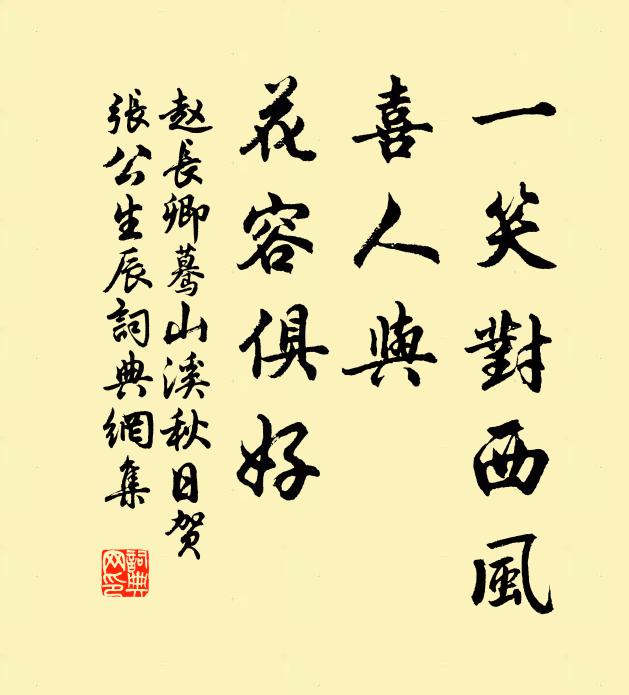 一笑對西風
喜人與
花容俱好
赵長卿蓦山溪秋日贺
張公生辰詞典網集
詞典
网印